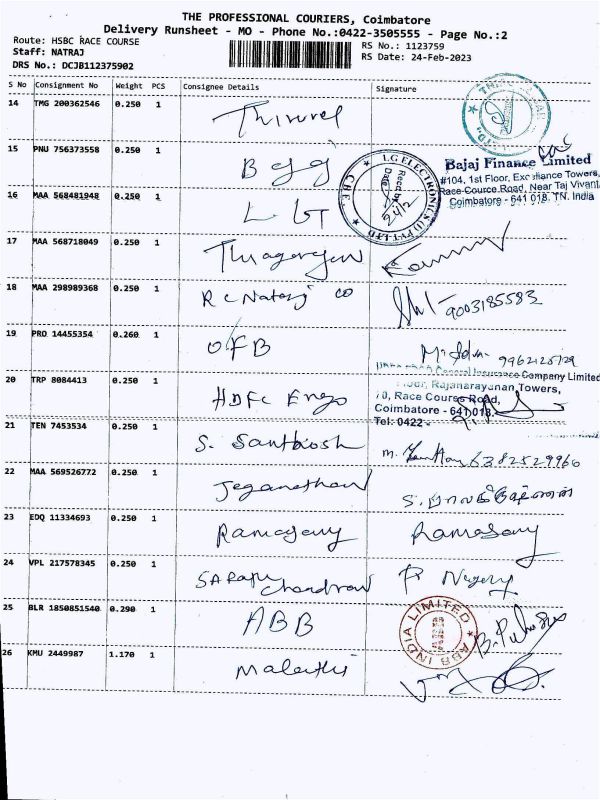 THE PROFESSIONAL COURIERS, Coimbatore
Delivery Runsheet - MO - Phone No.:0422-3505555 - Page No.:2
Route: HSBC RACE COURSE
Staff: NATRAJ
DRS No.: DCJB112375902
RS No.: 1123759
RS Date: 24-Feb-2023
S No Consignment No Weight PCS Consignee Details Signature
14 TMG 200362546 0.250 1
15 PNU 756373558 0.250 1
Bajaj Finance Limited
#104, 1st Floor, Excellance Towers,
Race Cource Road, Near Taj Vivanta
Coimbatore - 641 018. TN. India
I.G ELECTRONICS (I) PVT LTD
CBE
Recd by
Date 24/2
16 MAA 568481948 0.250 1 L G
17 MAA 568718049 0.250 1 Thiagarajan
18 MAA 298989368 0.250 1 R C Nataraj co 9003185583
19 PRO 14455354 0.260 1 OFB
General Insurance Company Limited
Floor, Rajanarayanan Towers,
70, Race Course Road,
Coimbatore - 641 018.
Tel: 0422 -
20 TRP 8084413 0.250 1 HDFC Ergo
21 TEN 7453534 0.250 1 S. Santhosh 6382529960
22 MAA 569526772 0.250 1 Jeganathan
23 EDQ 11334693 0.250 1 Ramasamy Ramasamy
24 VPL 217578345 0.250 1 Chandran
25 BLR 1850851540 0.290 1 ABB
ABB INDIA LIMITED
26 KMU 2449987 1.170 1 Malathi